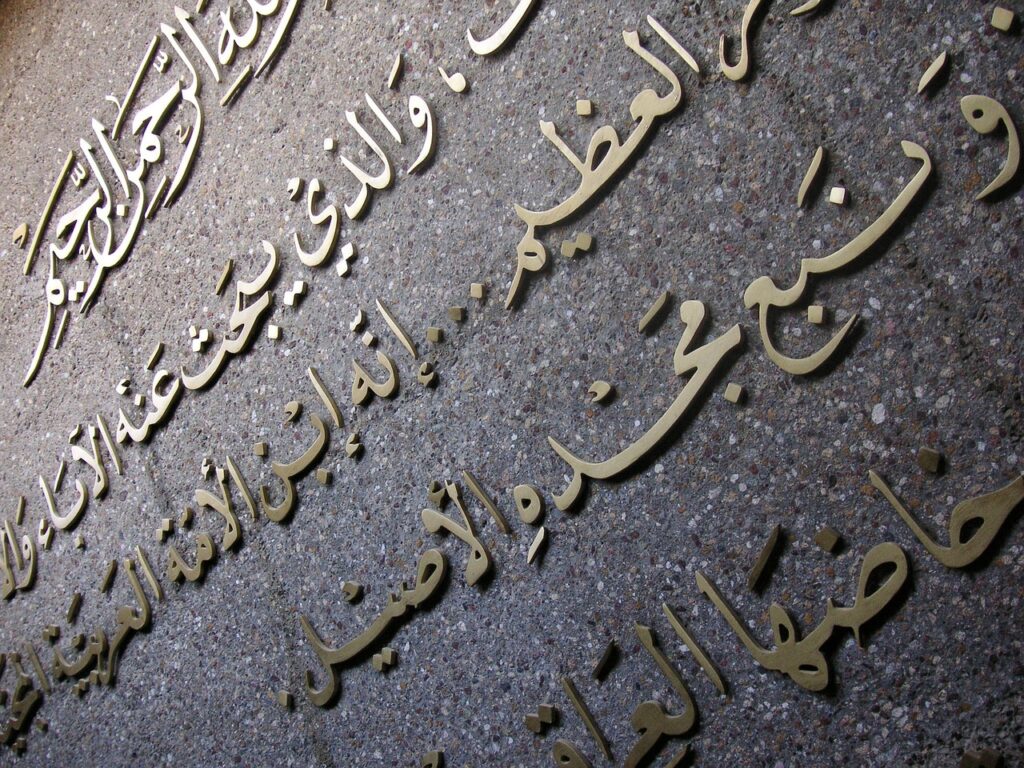 الرَّحْمنِ الرَّحيمِ
، وَالذيْ يبحَث عَنْه الآبَاء
العظيم ... إنّه ابْن الأمَّة العربيَّة
وَنَبع مجْدهِ الأصيْل .
خاضَها